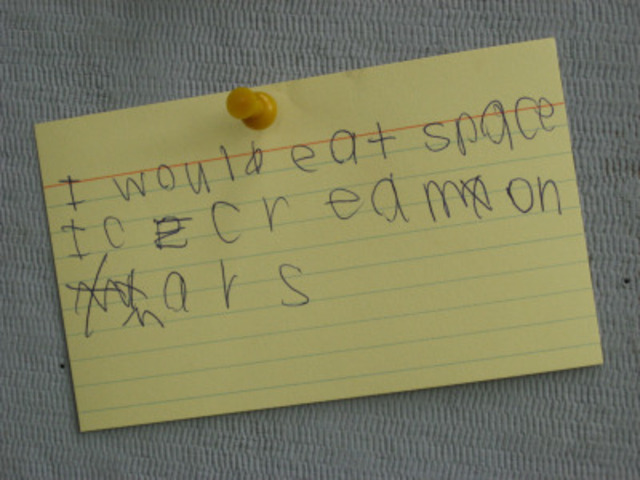 I would eat space
IcE Cream on
mars